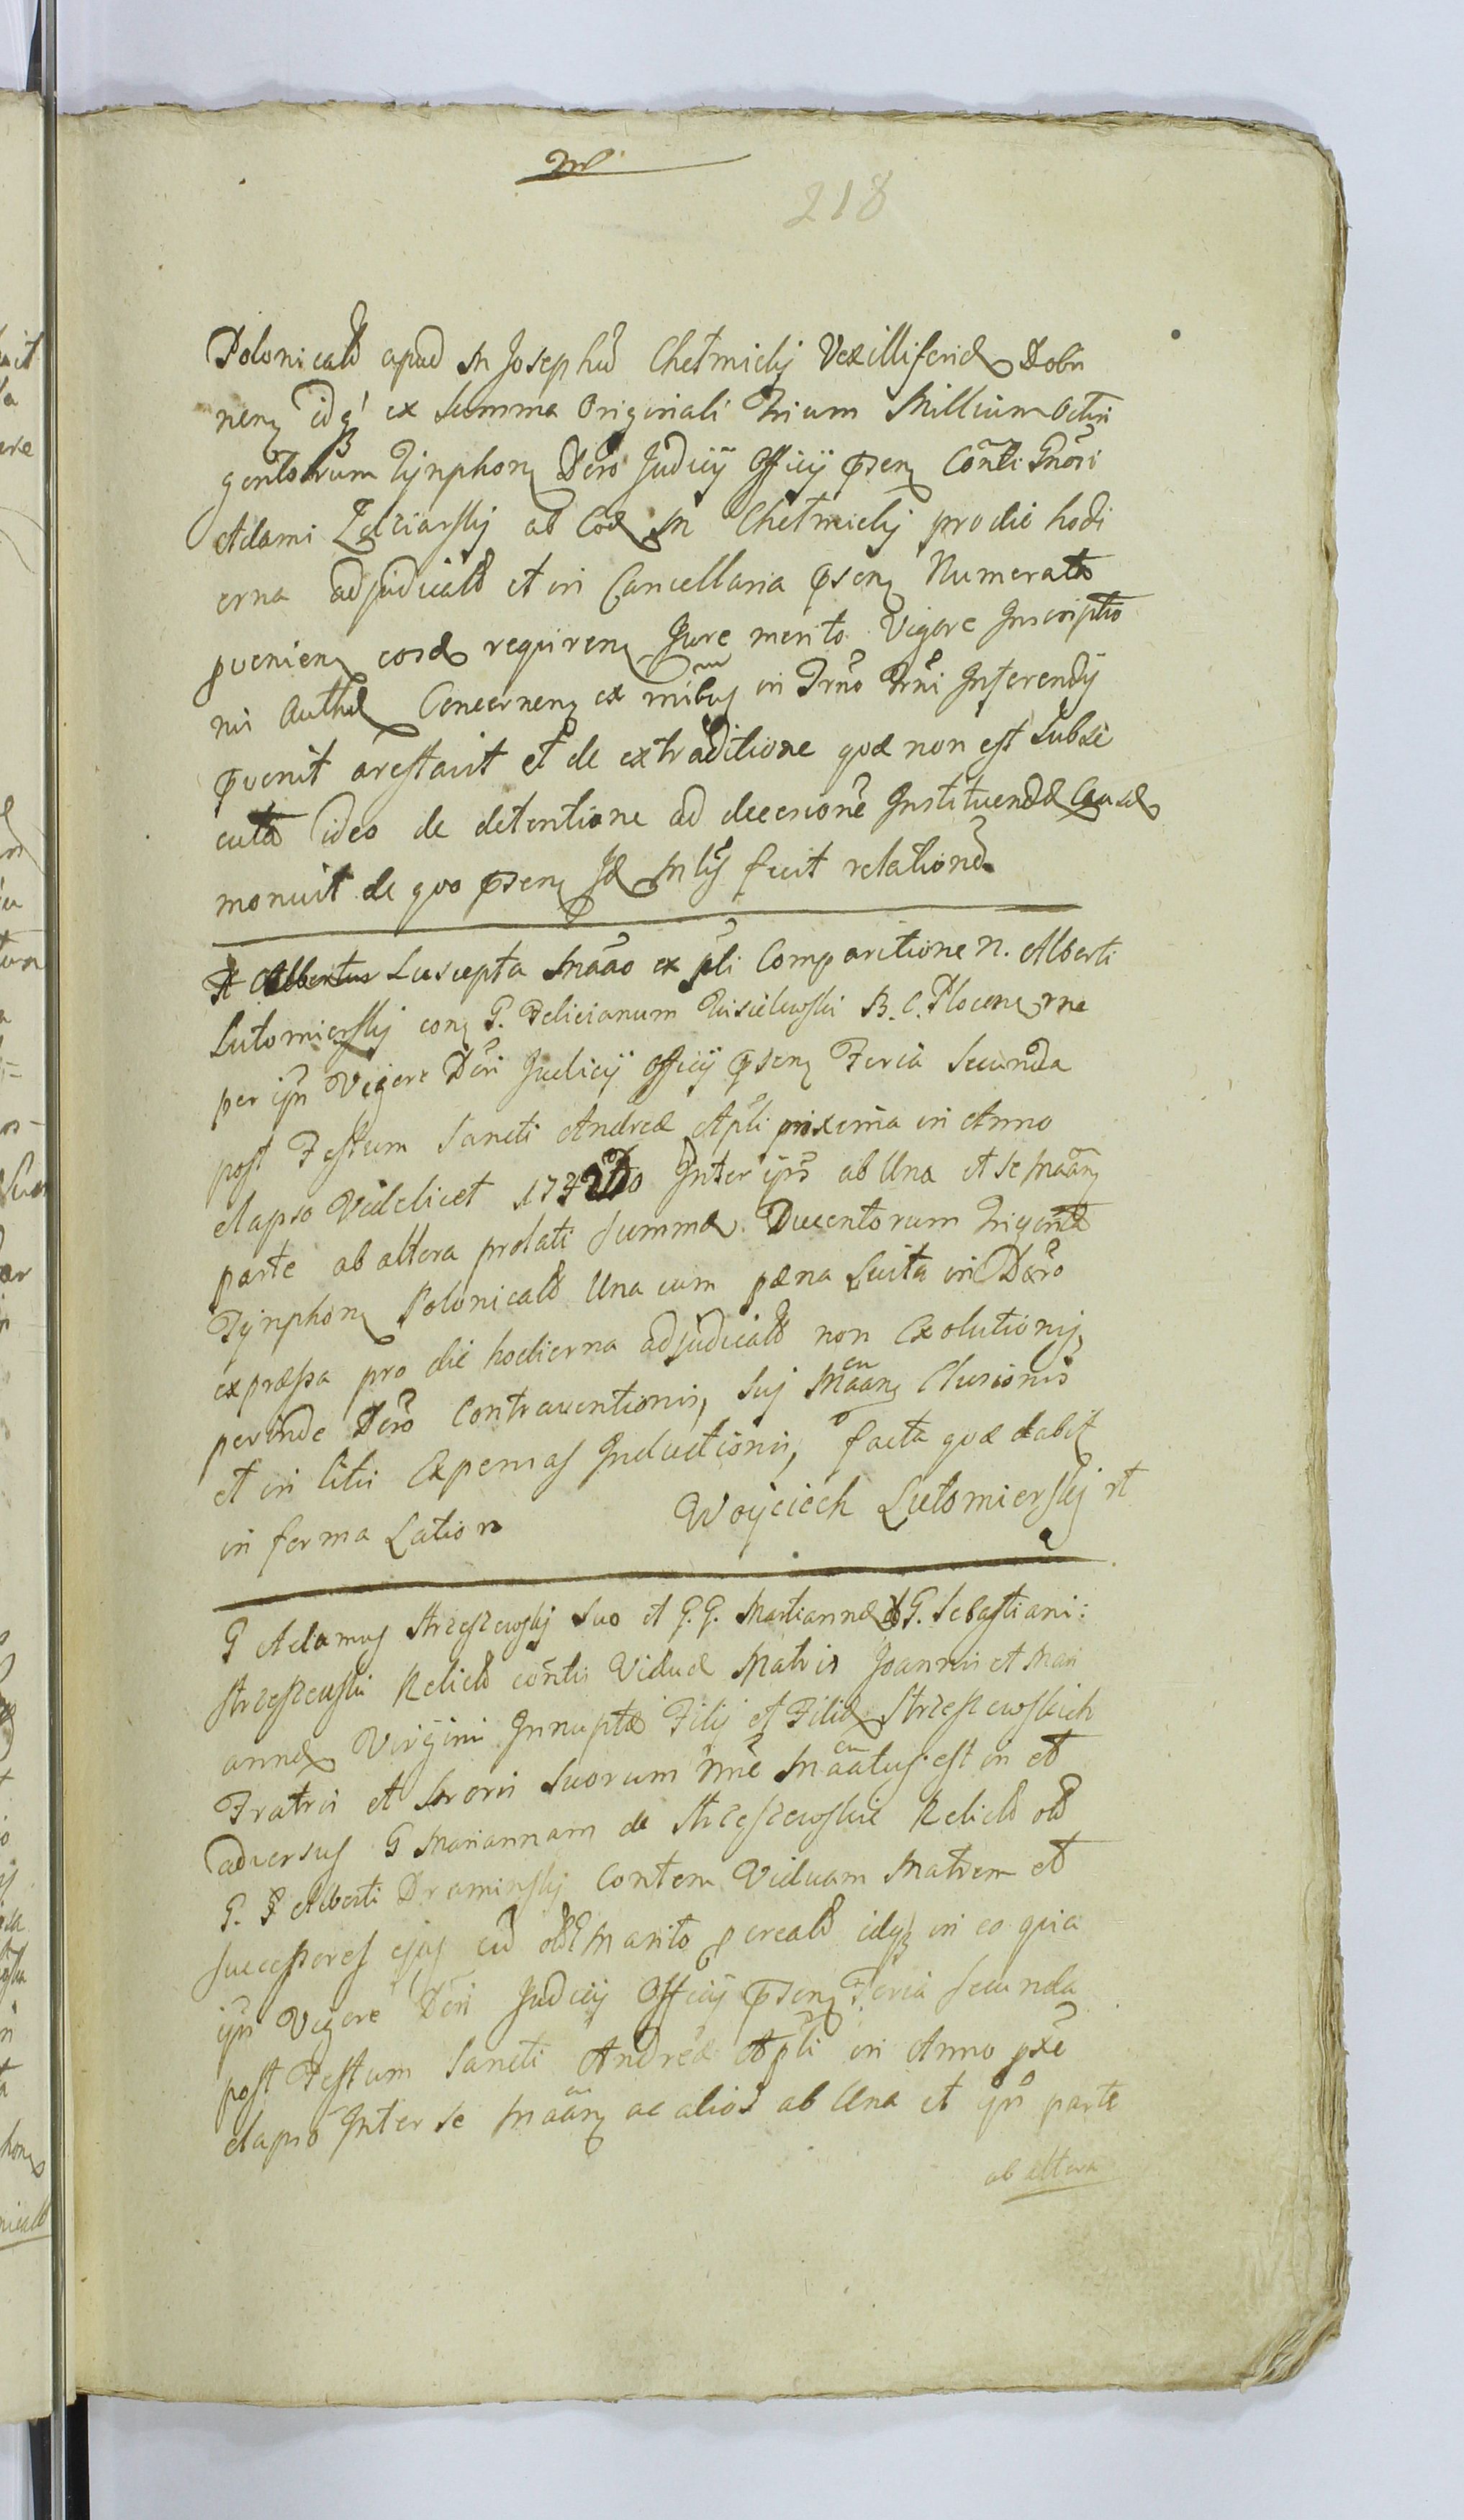 218
Polonicalũ apud M Josephũ Chełmicky Vexilliferũ Dobri
nen idq ex Summa Originali Trium Millium Octin
gentorum Tynphon Dero Judicij Officij psen Conti Gnosi
Adami ab Eod M Chełmicky pro die hodi
erna adjudicalũ et in Cancellaria psen Numerata
pvenien eosd requiren Jure merito Vigore Inscriptio
nis Auth Concernen ex mibus in Trno Trni Inferendij
pvenit arestavit et de extraditione quæ non est Subse
cuta ideo de detentione ad decesione Instituendæ Causæ
monuit de quo psen Jd Mlis fecit relatione
Suscepta Maao ex pli Comparitione N. Alberti
Lutomiersky con G. Felicianum Kisielewski B. C. Plocen rne
per ipm Vigore Deri Judicij Officij psen Feria Secunda
post Festum Sancti Andreæ Apli proxima in Anno
elapso Videlicet Inter ips ab Una et se Maan
parte ab altera prolati Summæ Ducentorum Triginta
Tynphon Polonicalũ Una cum pæna Luita in Dero
expressa pro die hodierna adjudicalũ non Exolutionis
perinde Dero Contraventionis, Suj Maan Elusionis
et in litis Expensas Inductionis, facta quæ dabit
in forma Lation Woyciech Lutomiersky rt
G Adamus Strzeszewsky Suo et G. G. Mariannæ G. Sebastiani
Strzeszewski Relictũ contis Viduæ Matris Joannis et Mari
annæ Virgini Innuptæ Filij et Filiæ Strzeszewskich
Fratris et Sororis Suorum nne Maatus est in et
adversus G Mariannam de Strzeszewskie Relictũ olũ
G. Alberti Draminsky Contem Viduam Matrem et
successores ejus cũ olũ Marito pcrealũ idq in eo quia
ipn Vigore Deri Judicij Officij psen Feria Secunda
post Festum Sancti Andreæ Apli in Anno pxe
elapso Inter se Maan ac alios ab Una et ipn parte
ab altera